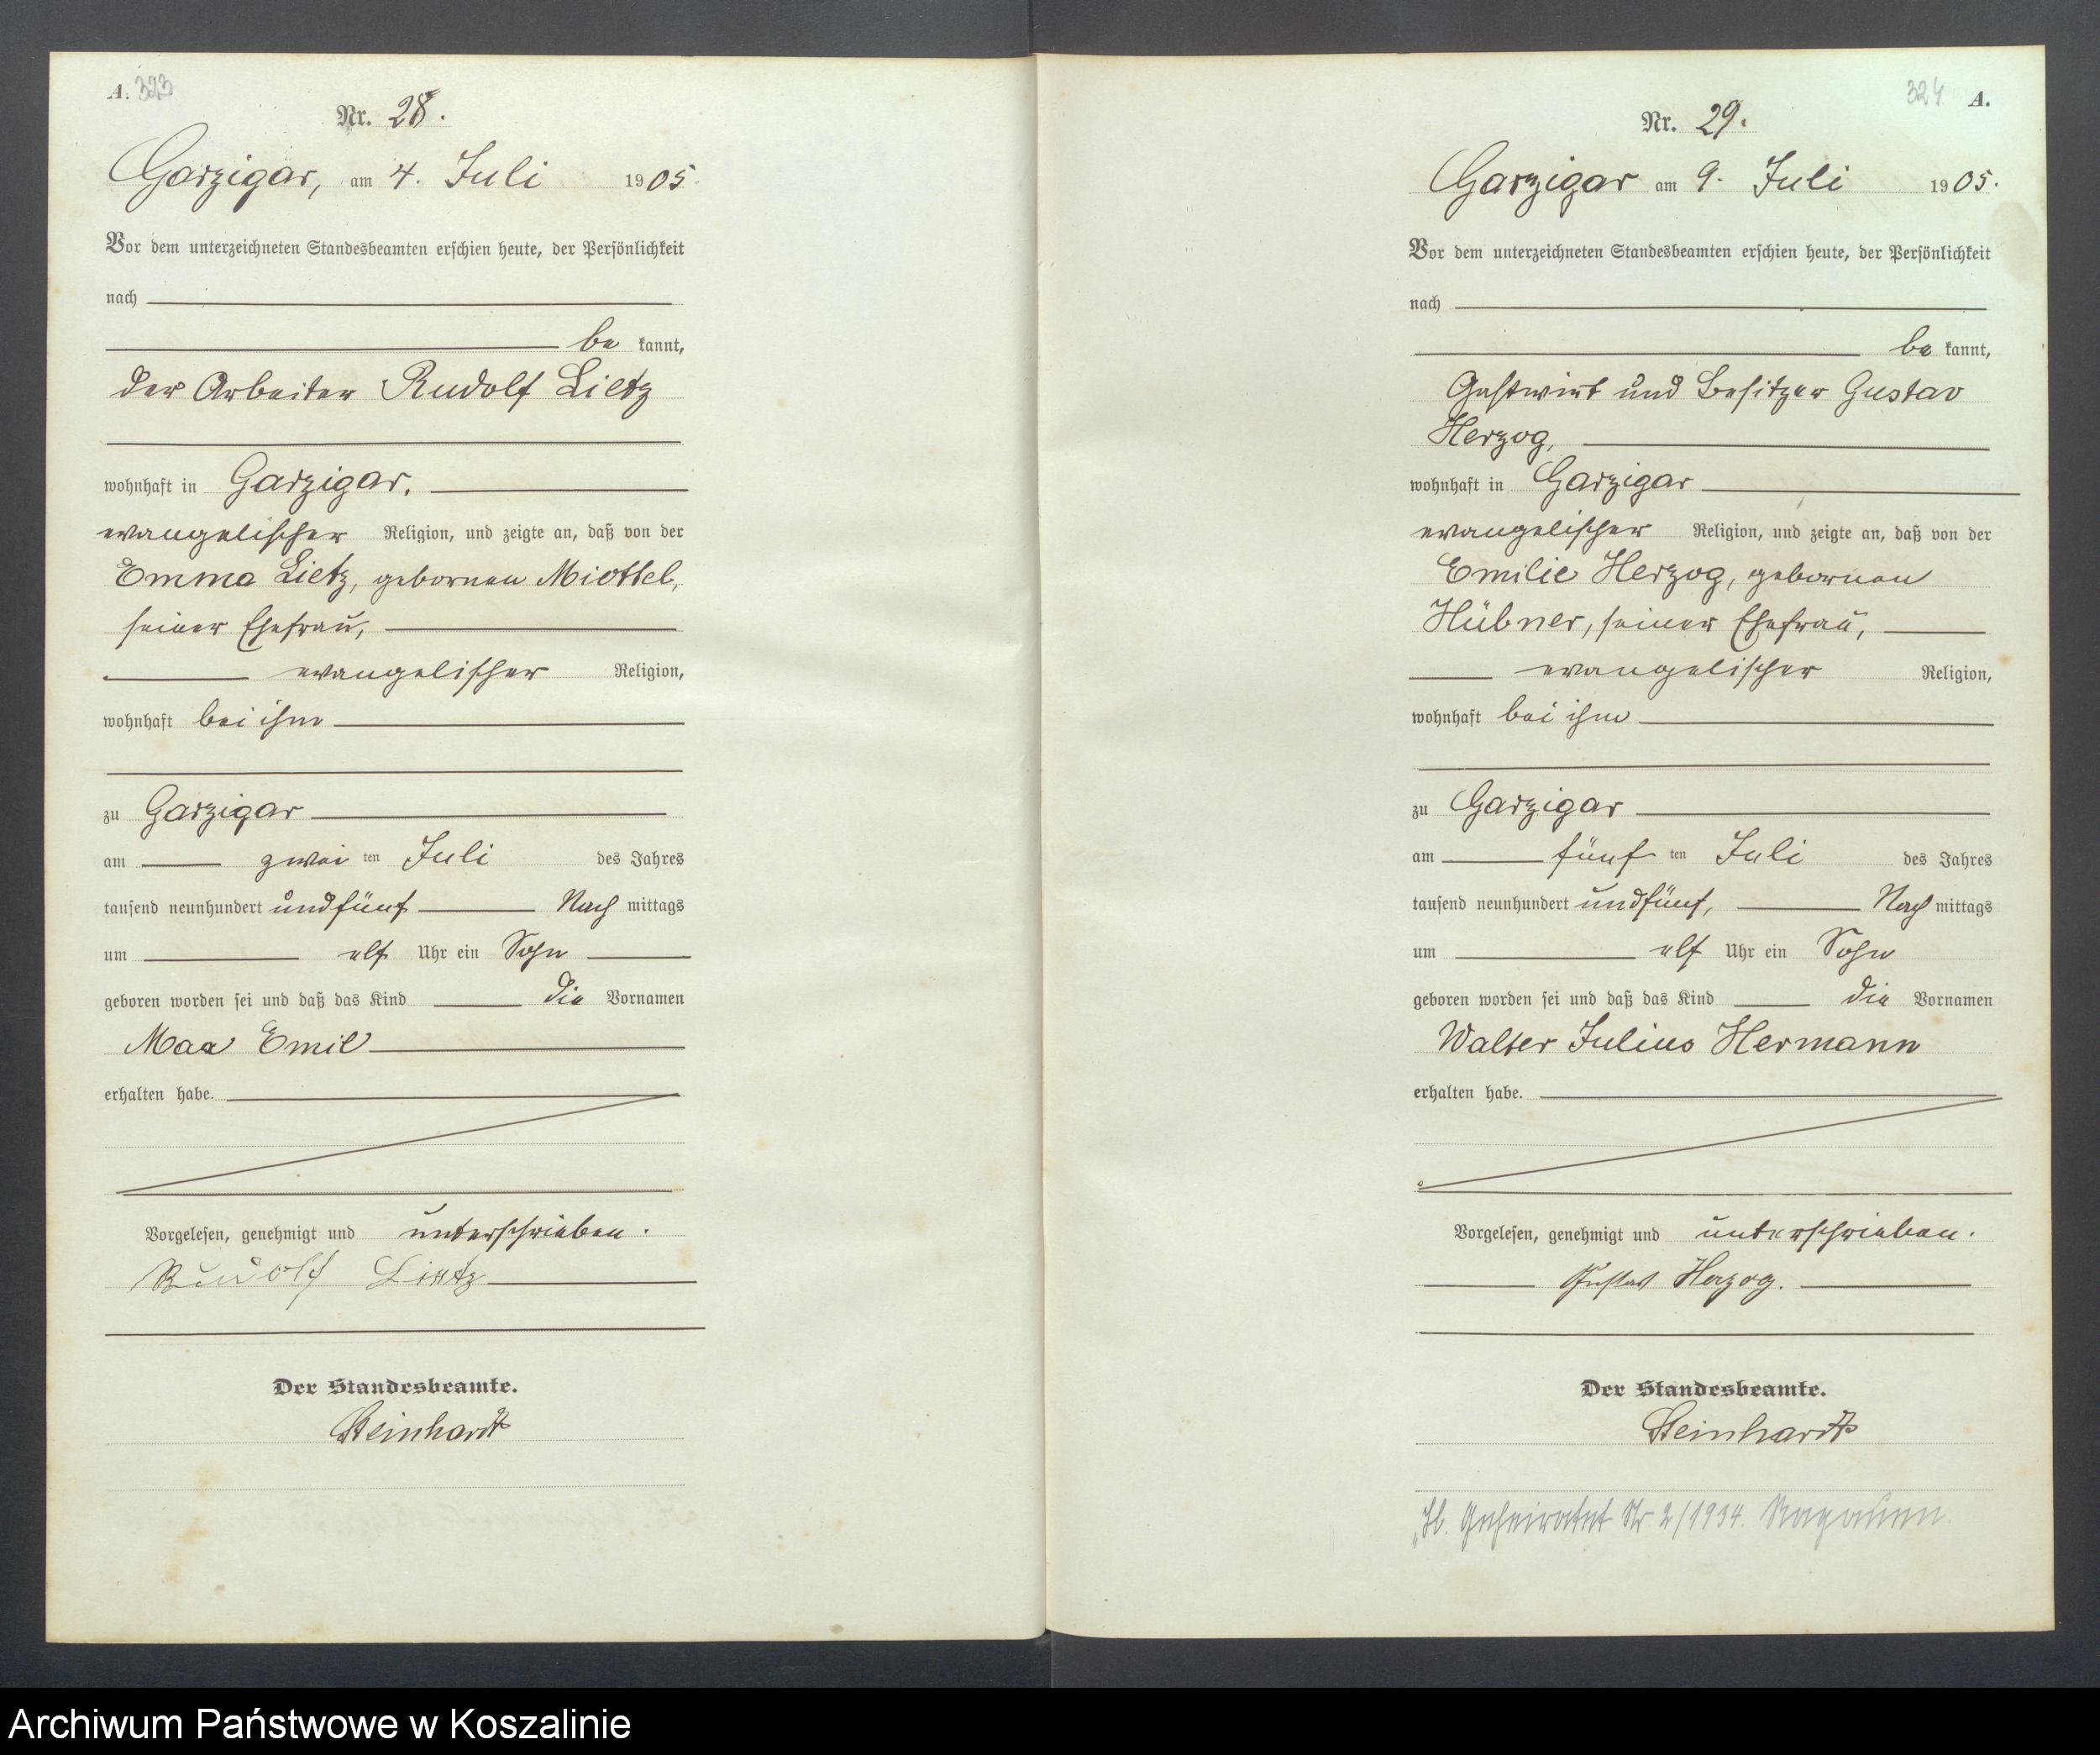 A. 323
Nr. 28.
Garzigar, am 4. Juli 1905
Vor dem unterzeichneten Standesbeamten erschien heute, der Persönlichkeit
nach
be kannt,
der Arbeiter Rudolf Lietz
wohnhaft in Garzigar.
evangelischer Religion, und zeigte an, daß von der
Emma Lietz, gebornen Miottel,
seiner Ehefrau,
evangelischer Religion,
wohnhaft bei ihm
zu Garzigar
am zwei ten Juli des Jahres
tausend neunhundert und fünf Nach mittags
um elf Uhr ein Sohn
geboren worden sei und daß das Kind die Vornamen
Max Emil
erhalten habe.
Vorgelesen, genehmigt und unterschrieben.
Rudolf Lietz
Der Standesbeamte.
Steinhardt
324 A.
Nr. 29.
Garzigar am 9. Juli 1905.
Vor dem unterzeichneten Standesbeamten erschien heute, der Persönlichkeit
nach
be kannt,
Gastwirt und Besitzer Gustav
Herzog,
wohnhaft in Garzigar
evangelischer Religion, und zeigte an, daß von der
Emilie Herzog, gebornen
Hübner, seiner Ehefrau,
evangelischer Religion,
wohnhaft bei ihm
zu Garzigar
am fünf ten Juli des Jahres
tausend neunhundert und fünf, Nach mittags
um elf Uhr ein Sohn
geboren worden sei und daß das Kind die Vornamen
Walter Julius Hermann
erhalten habe.
Vorgelesen, genehmigt und unterschrieben.
Gustav Herzog.
Der Standesbeamte.
Steinhardt
Geheiratet Nr 2/1934.
Archiwum Państwowe w Koszalinie